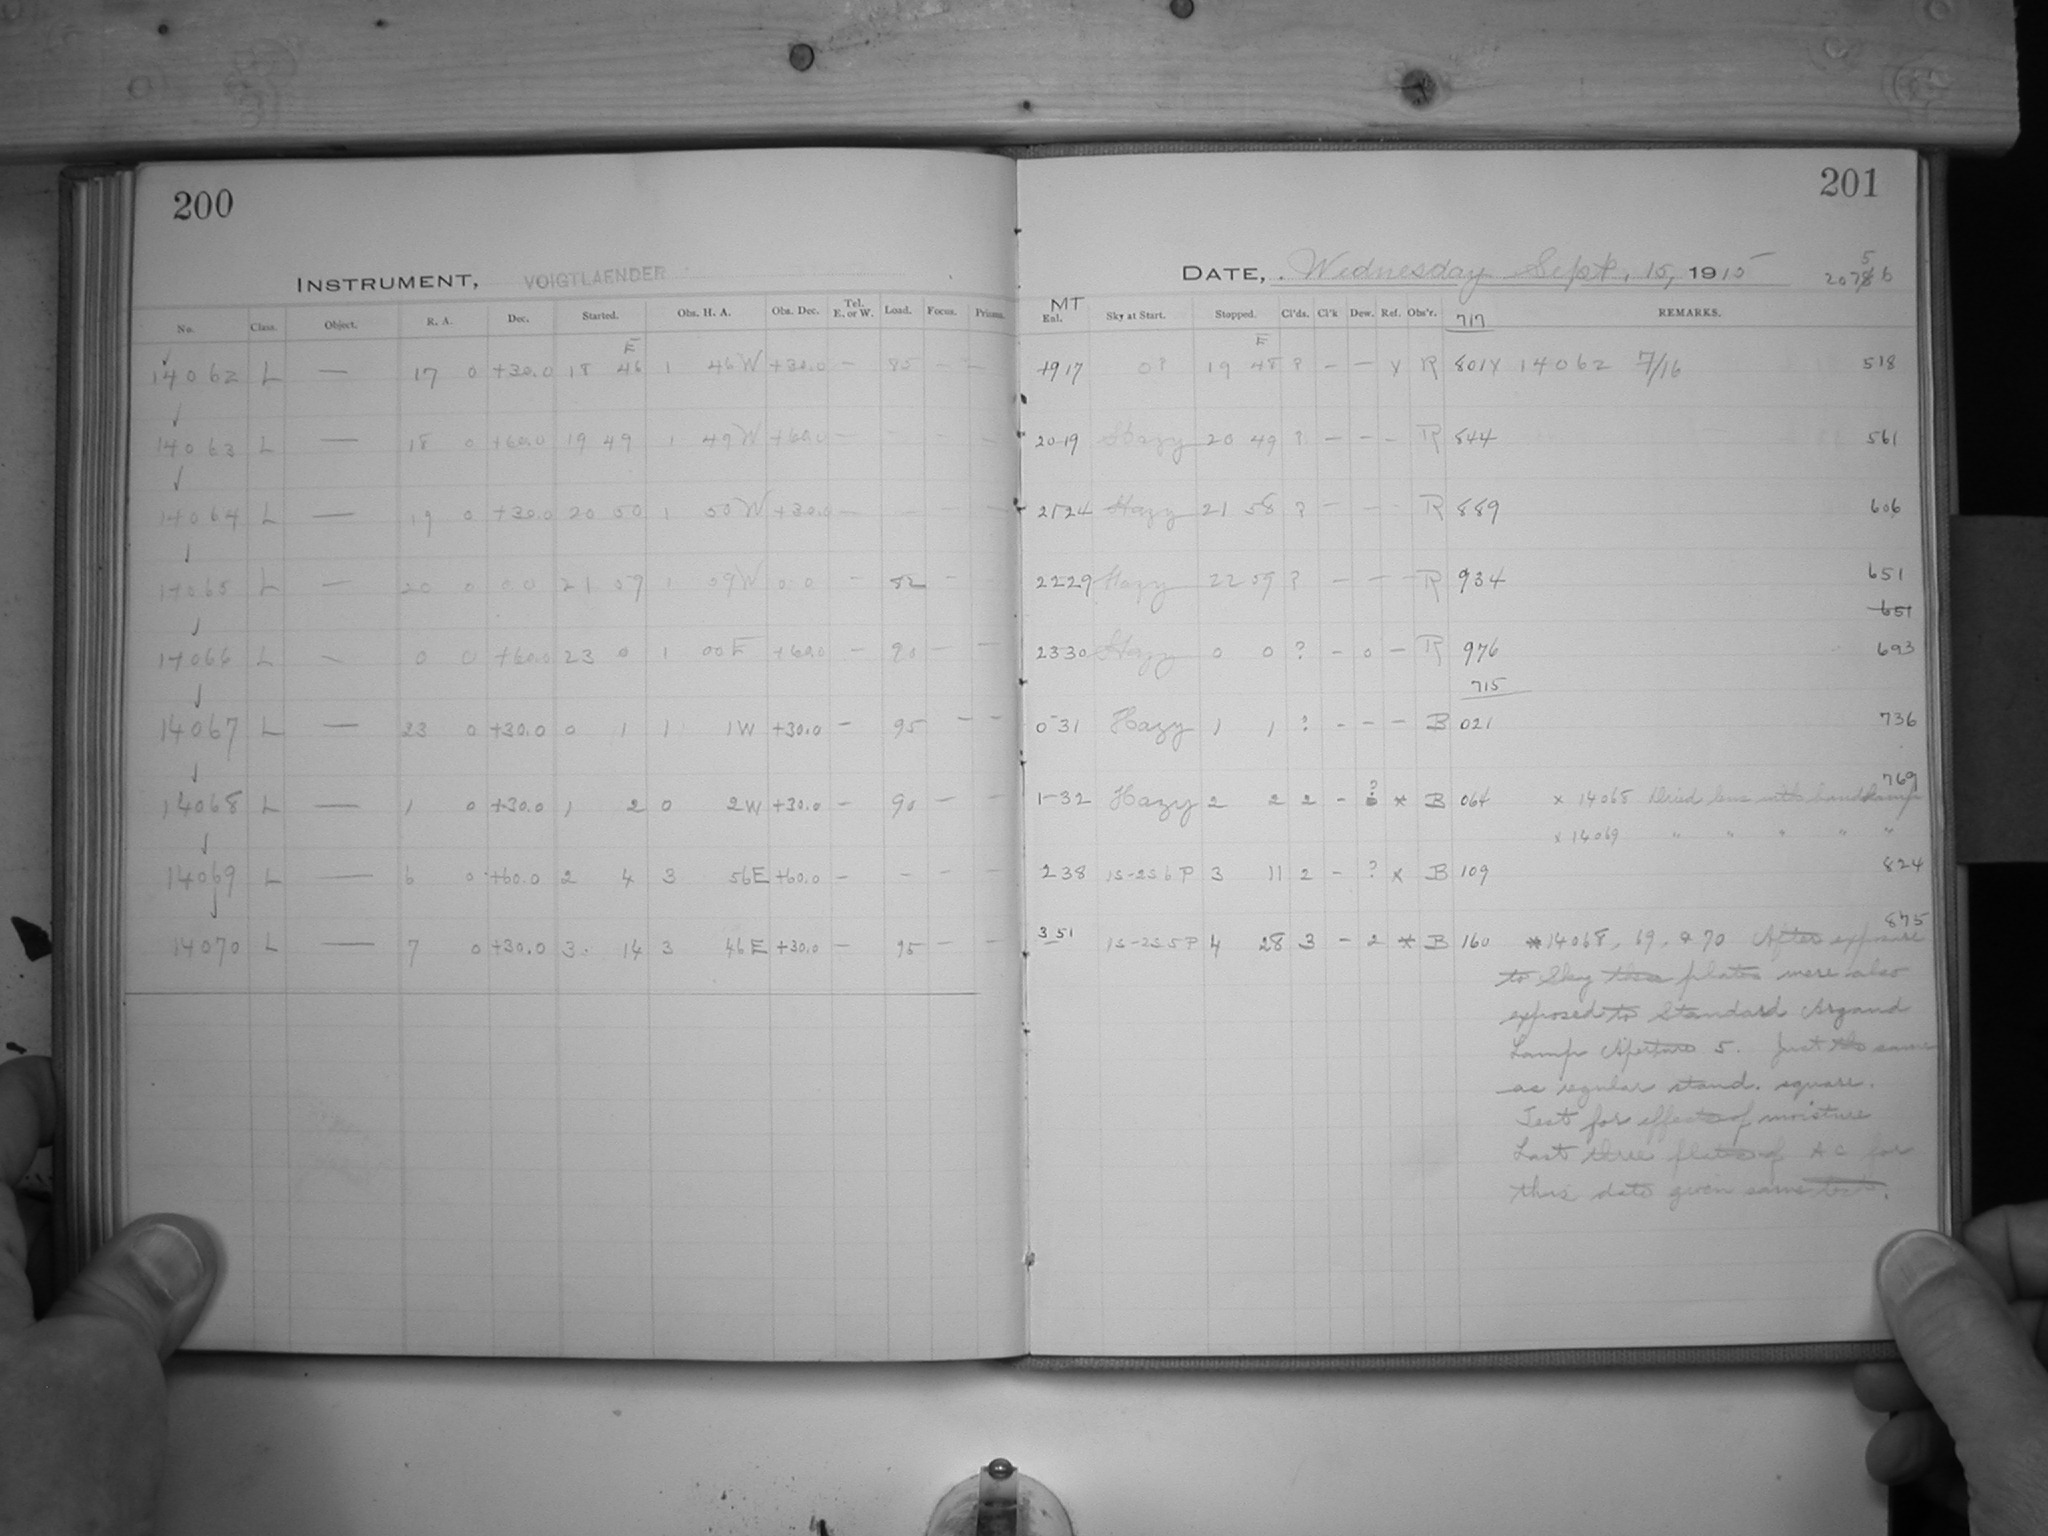 200
INSTRUMENT, VOIGTLAENDER
No. Class. Object. R. A. Dec. Started. Obs. H. A. Obs. Dec. Tel. E. or W. Load. Focus. Prisms.
14062 L — 17 0 +30.0 18 46 E 1 46 W +30.0 — 85 — —
14063 L — 18 0 +60.0 19 49 1 49 W +60.0 — - - -
14064 L — 19 0 +30.0 20 50 1 50 W +30.0 — - - -
14065 L — 20 0 0.0 21 09 1 09 W 0.0 — 82 -
14066 L — 0 0 +60.0 23 0 1 00 E +60.0 — 90 — —
14067 L — 23 0 +30.0 0 1 1 1 W +30.0 — 95 — —
14068 L — 1 0 +30.0 1 2 0 2 W +30.0 — 90 — —
14069 L — 6 0 +60.0 2 4 3 56 E +60.0 — - - -
14070 L — 7 0 +30.0 3 14 3 46 E +30.0 — 95 — —
201
DATE, Wednesday Sept. 15, 1915
MT
Enl. Sky at Start. Stopped. Cl'ds. Cl'k Dew. Ref. Obs'r. 717 REMARKS.
1917 0? 19 48 E ? — — Y R 801Y 14062 7/16 518
2019 Hazy 20 49 ? — — - R 844 561
2124 Hazy 21 58 ? — — - R 889 606
2229 Hazy 22 09 ? — — — R 934 651
651
2330 Hazy 0 0 ? - 0 — R 976 693
715
0 31 Hazy 1 1 ? - - — B 021 736
1-32 Hazy 2 2 2 - ? * B 064 x 14065 Dried lens with hand lamp 769
x 14069 " " " " "
2 38 1s-2s 6 P 3 11 2 - ? x B 109 824
3 51 1s-2s 5 P 4 28 3 - 2 * B 160 * 14068, 69, & 70 After exposure 875
to sky these plates were also
exposed to Standard Argand
Lamp Aperture 5. Just the same
as regular stand. square.
Test for effects of moisture
Last three plates of AC for
this date given same test.